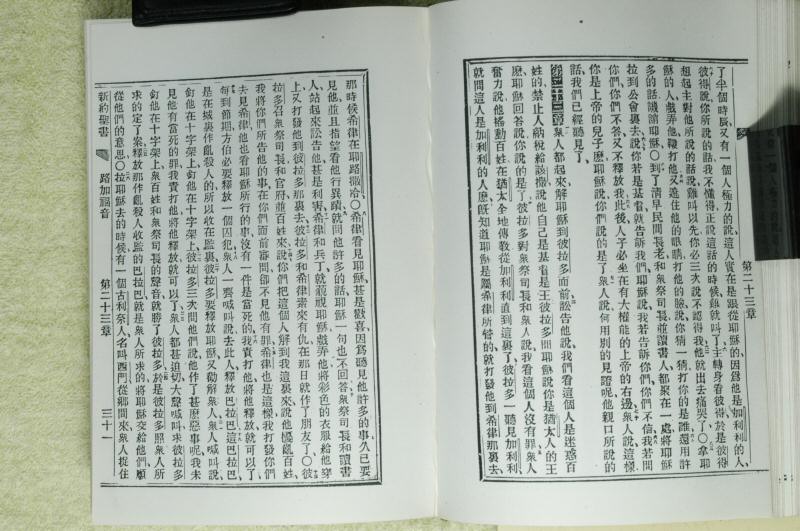 了半個時辰又有一個人極力的說這人實在是跟從耶穌的因爲他是加利利的人
彼得說你所說的話我不懂得正說這話的時候雞就叫了主轉身看彼得於是彼得
想起主對他所說的話說雞叫以先你必三次說不認得我他就出去痛哭了〇拿耶
穌的人戲弄他鞭打他又遮住他的眼睛打他的臉說你猜一猜打你的是誰還用許
多的話譏誚耶穌〇到了清早民間長老和衆祭司長並讀書人都聚在一處將耶穌
拉到公會裏去說你若是基督就告訴我們耶穌說我若告訴你們你們不信我若問
你們你們不答又不釋放我此後人子必坐在有大權能的上帝的右邊衆人說這樣
你是上帝的兒子麽耶穌說你們說的是了衆人說何用別的見證呢他親口所說的
話我們已經聽見了
第二十三章 衆人都起來解耶穌到彼拉多面前訟告他說我們看這個人是迷惑百
姓的禁止人納稅給該撒說他自己是基督是王彼拉多問耶穌說你是猶太人的王
麽耶穌回答說你說的是了彼拉多對衆祭司長和衆人說我看這個人沒有罪衆人
奮力說他搖動百姓在猶太全地傳教從加利利直到這裏了彼拉多一聽見加利利
就問這人是加利利的人麽旣知道耶穌是屬希律所管的就打發他到希律那裏去
第二十三章
那時候希律在耶路撒冷〇希律看見耶穌甚是歡喜因爲聽見他許多的事久已要
見他並且指望看他行異蹟就問他許多的話耶穌一句也不回答衆祭司長和讀書
人站起來訟告他甚是利害希律和兵丁就藐視耶穌戲弄他將彩色的衣服給他穿
上又打發他到彼拉多那裏去彼拉多和希律素來有仇在那日就作了朋友了〇彼
拉多召衆祭司長和官府並百姓來說你們把這個人解到我這裏來說他惑亂百姓
我將你們所告他的事在你們面前審問卻不見他有罪希律也是這樣我打發你們
去見希律他也看耶穌所行的事沒有一件是當死的我責打他將他釋放就可以了
每到節期方伯必要釋放一個囚犯衆人一齊喊叫說去此人釋放巴拉巴這巴拉巴
是在城裏作亂殺人的所以收在監裏彼拉多要釋放耶穌又勸解衆人衆人喊叫說
釘他在十字架上釘他在十字架上彼拉多三次問他們說他作了甚麽惡事呢我未
見他有當死的罪我責打他將他釋放就可以了衆人都甚迫切大聲喊叫求彼拉多
釘他在十字架上衆百姓和衆祭司長的聲音就勝了彼拉多於是彼拉多照衆人所
求的定了案釋放那作亂殺人收監的巴拉巴就是衆人所求的將耶穌交給他們順
從他們的意思〇拉耶穌去的時候有一個古利奈人名叫西門從鄉間來衆人捉住
新約聖書 路加福音 第二十三章 三十一